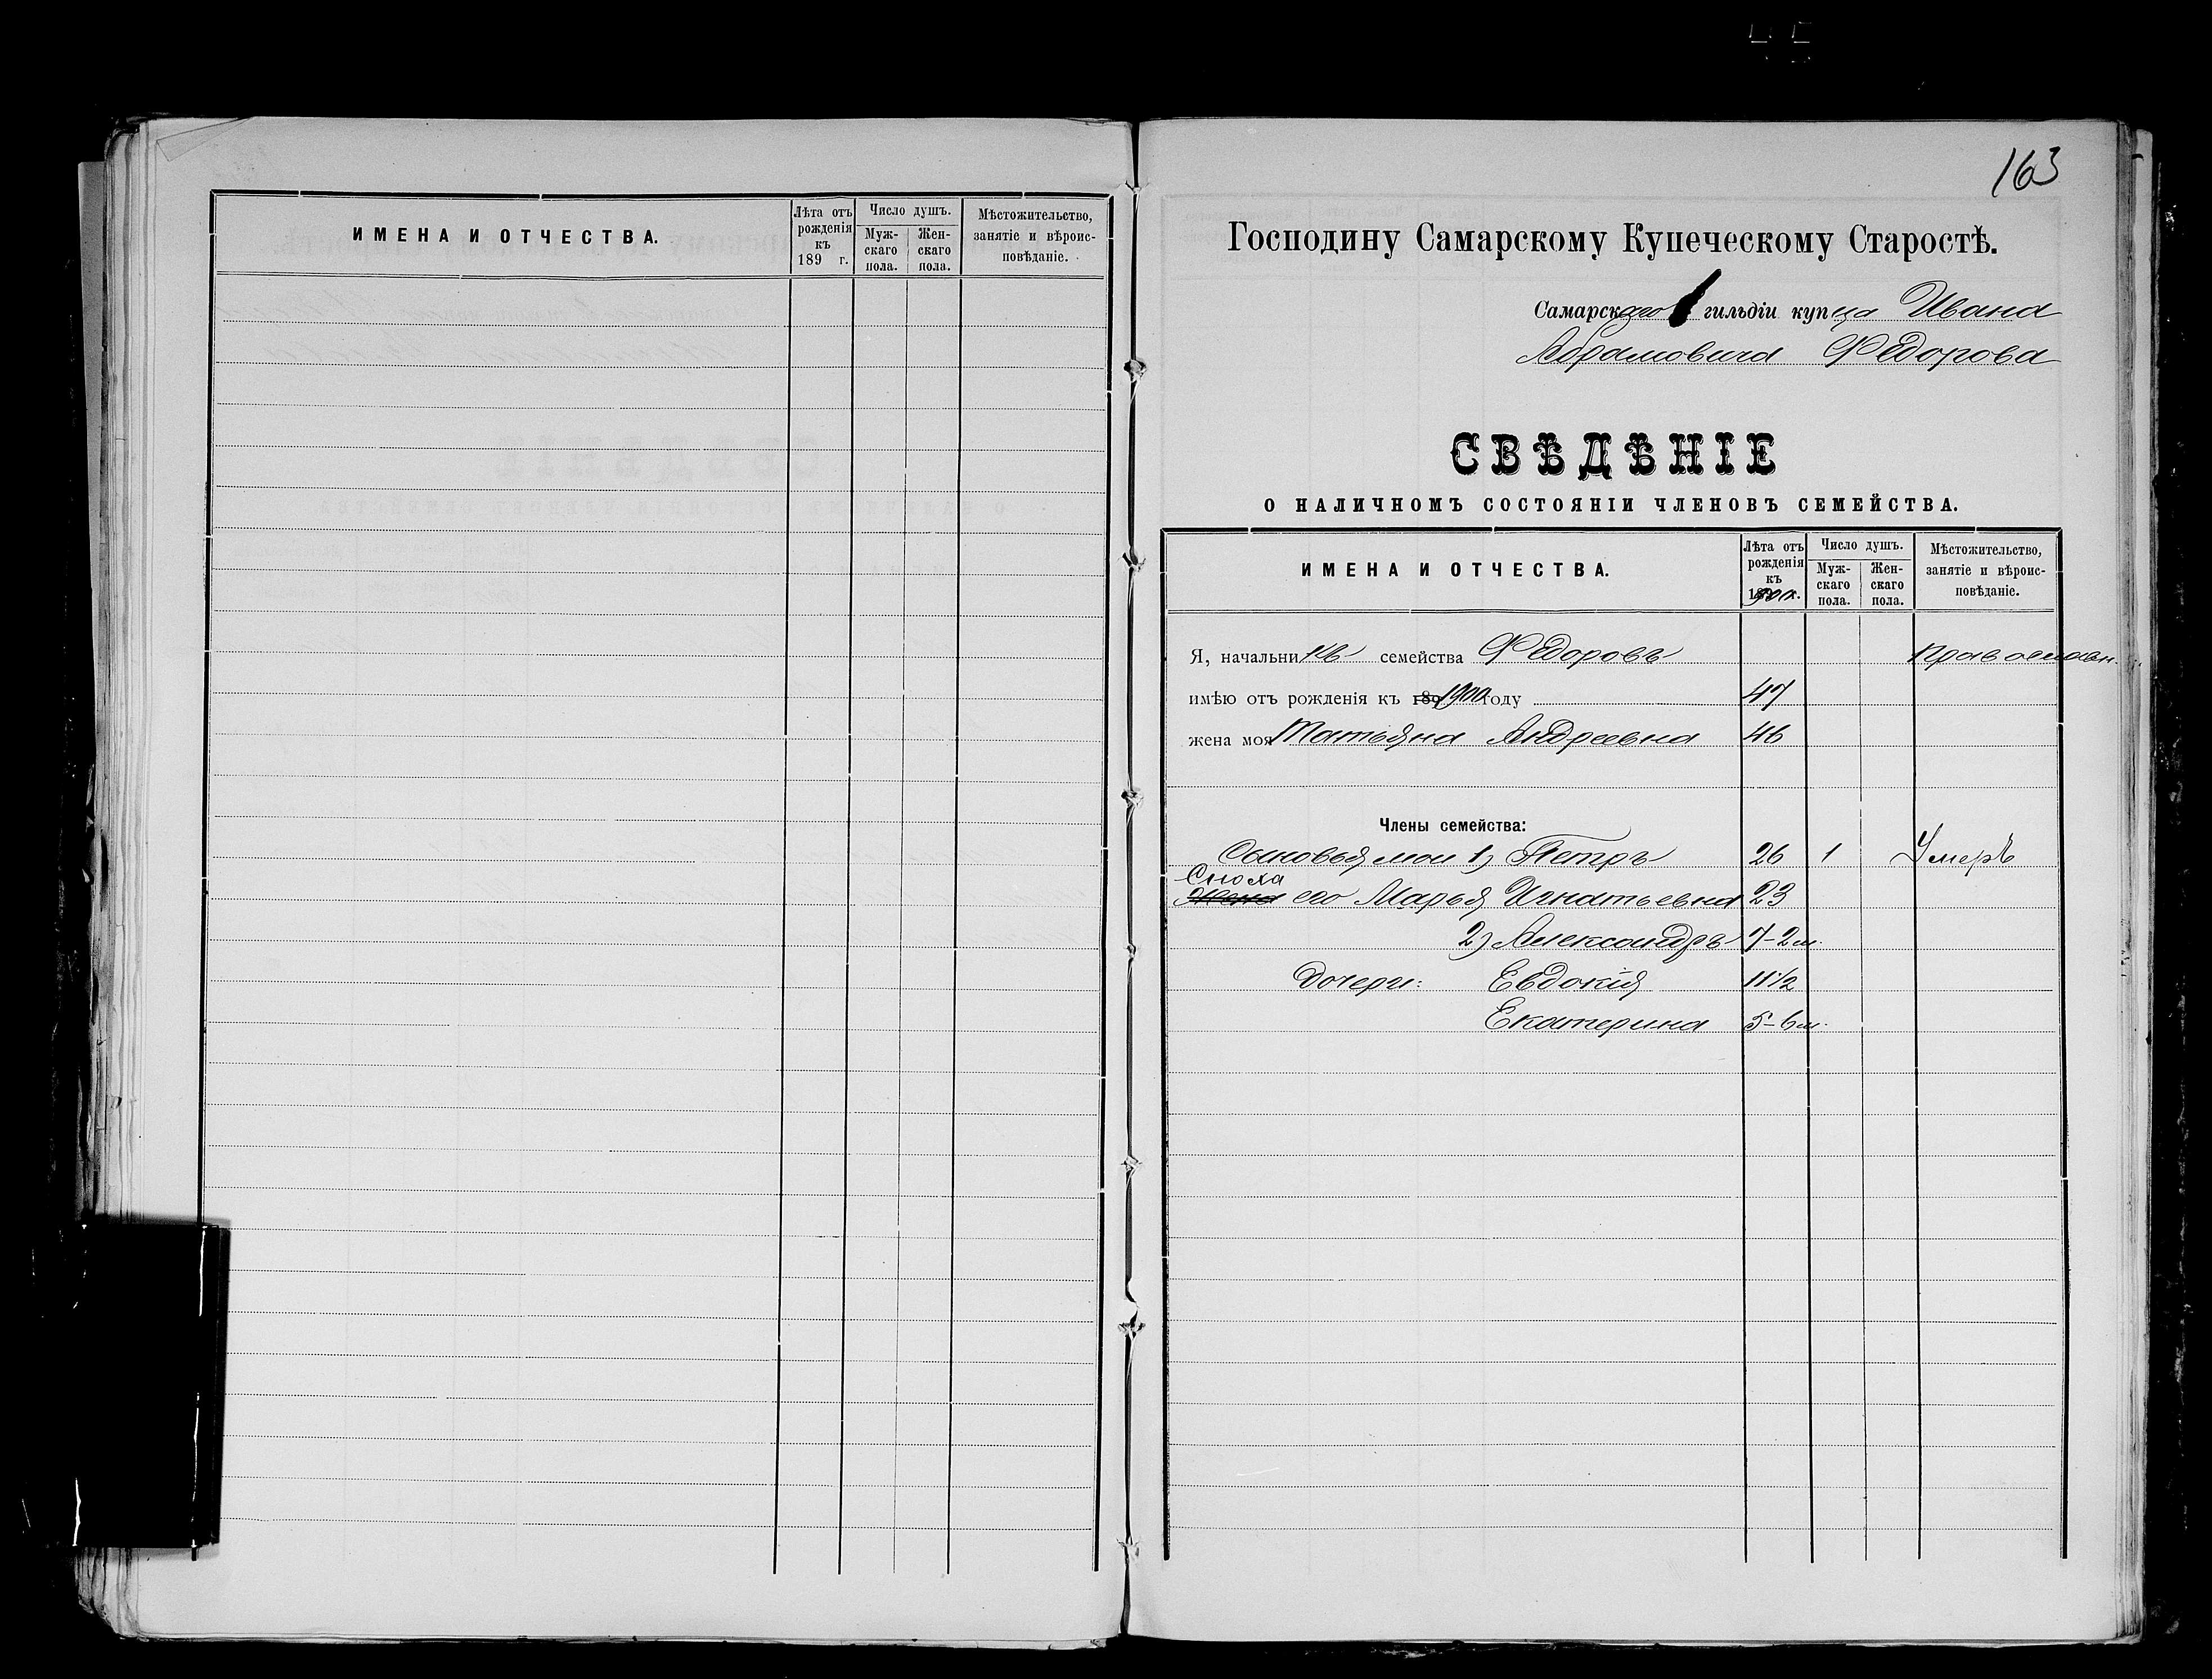 ИМЕНА И ОТЧЕСТВА.
Лѣта отъ рожденія къ 189 г.
Число душъ.
Муж-скаго пола.
Жен-скаго пола.
Мѣстожительство, занятіе и вѣроис-повѣданіе.
163
Господину Самарскому Купеческому Старостѣ.
Самарскаго гильдіи купца Ивана
Абрамовича Федорова
СВѢДѢНІЕ
О НАЛИЧНОМЪ СОСТОЯНІИ ЧЛЕНОВЪ СЕМЕЙСТВА.
ИМЕНА И ОТЧЕСТВА.
Лѣта отъ рожденія къ
Число душъ.
Муж-скаго пола.
Жен-скаго пола.
Мѣстожительство, занятіе и вѣроис-повѣданіе.
Я, начальникъ семейства Федоровъ Православн.
имѣю отъ рожденія къ 189 1900 году 47
жена моя Татьяна Андреевна 46
Члены семейства:
Сыновья мои 1) Петръ 26 1 Умеръ
Сноха
Жена его Марья Игнатьевна 23
2) Александръ 7-2 м.
Дочери: Евдокія 11 1/2
Екатерина 5-6 м.